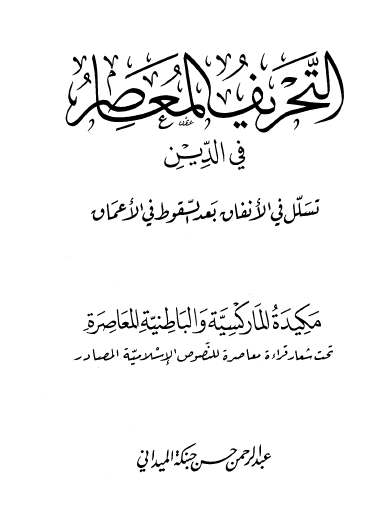 التَّحْرِيفُ المُعَاصِرُ
في الدِّيْنِ
تسلّل في الأنفاق بَعد السّقوط في الأعمَاق
مَكِيدَةُ المَاركْسِيَّة وَالبَاطِنيّةِ المعَاصِرَةِ
تحت شعار قراءة معاصرة للنّصُوص الإسْلاميّة المصادر
عبد الرحمن حسن حبنكة الميداني